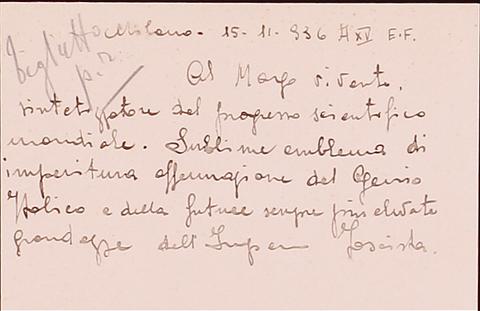 Biglietto
p. r.
Milano - 15 - 11 - 936 A XV E.F.
Al Mago vivente,
sintetizzatore del progresso scientifico
mondiale. Sublime emblema di
imperitura affermazione del Genio
Italico e della future sempre più elevate
grandezze dell'Impero Fascista.